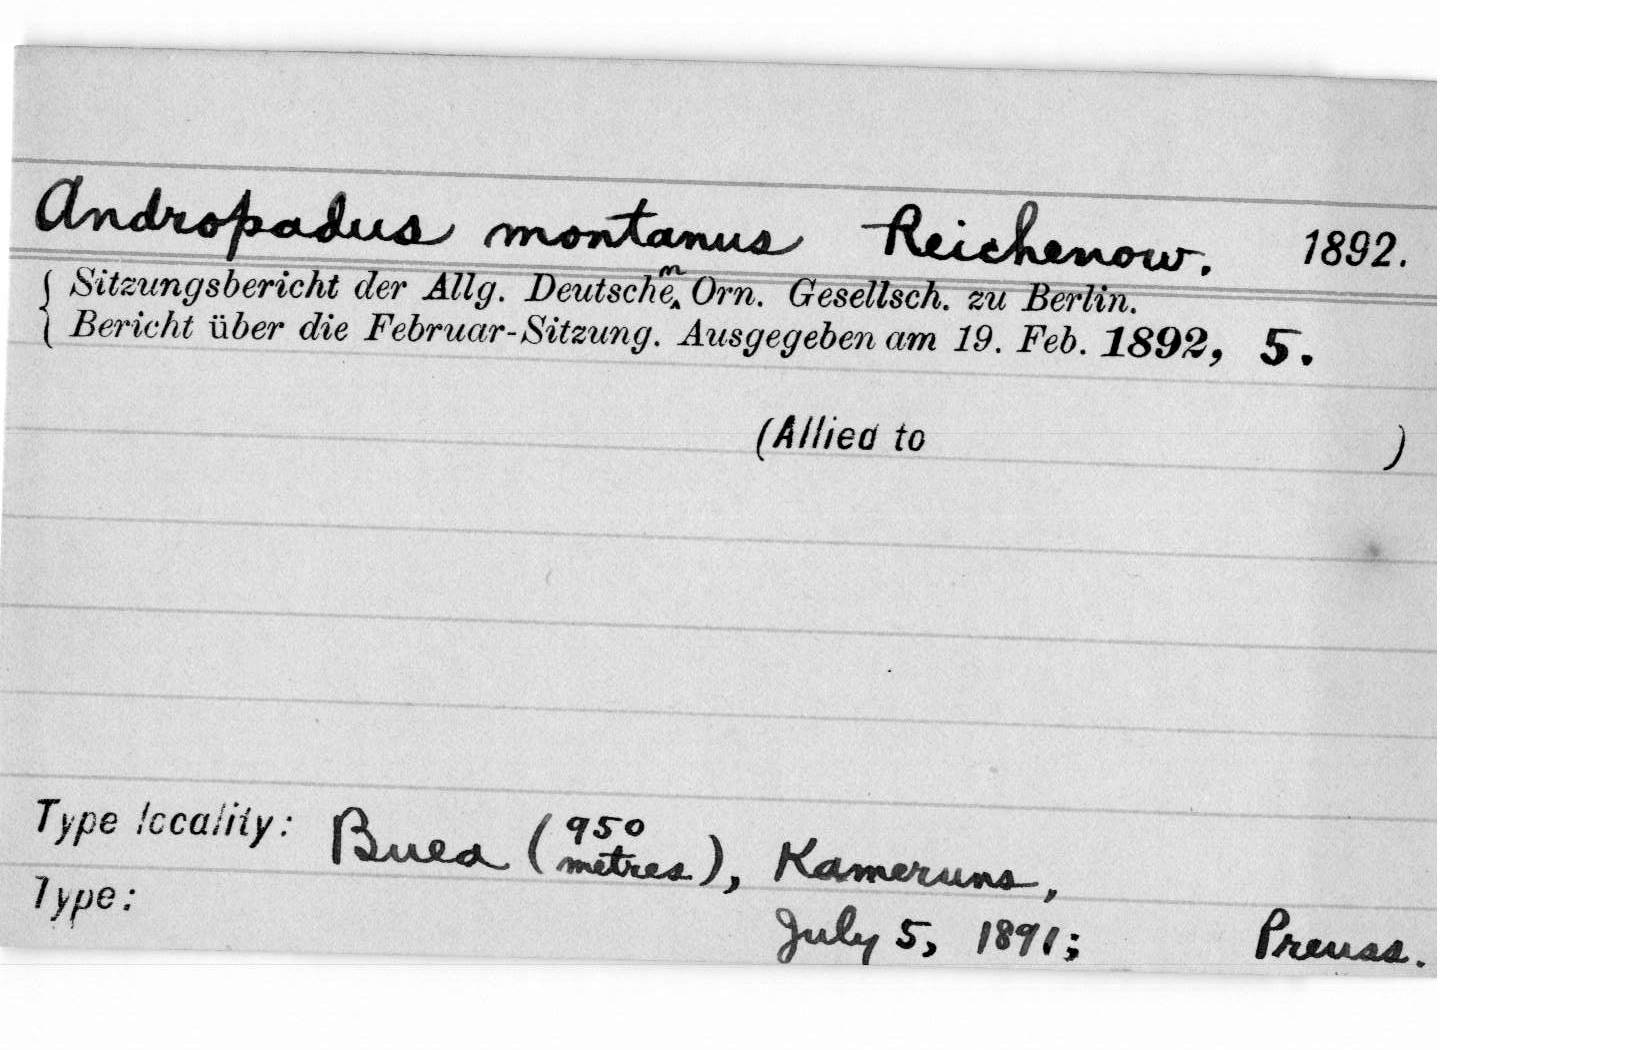 Andropadus montanus Reichenow. 1892.
{ Sitzungsbericht der Allg. Deutschen Orn. Gesellsch. zu Berlin.
Bericht über die Februar-Sitzung. Ausgegeben am 19. Feb. 1892, 5.
(Allied to )
Type locality: Buea (950 metres), Kameruns,
Type: July 5, 1891; Preuss.